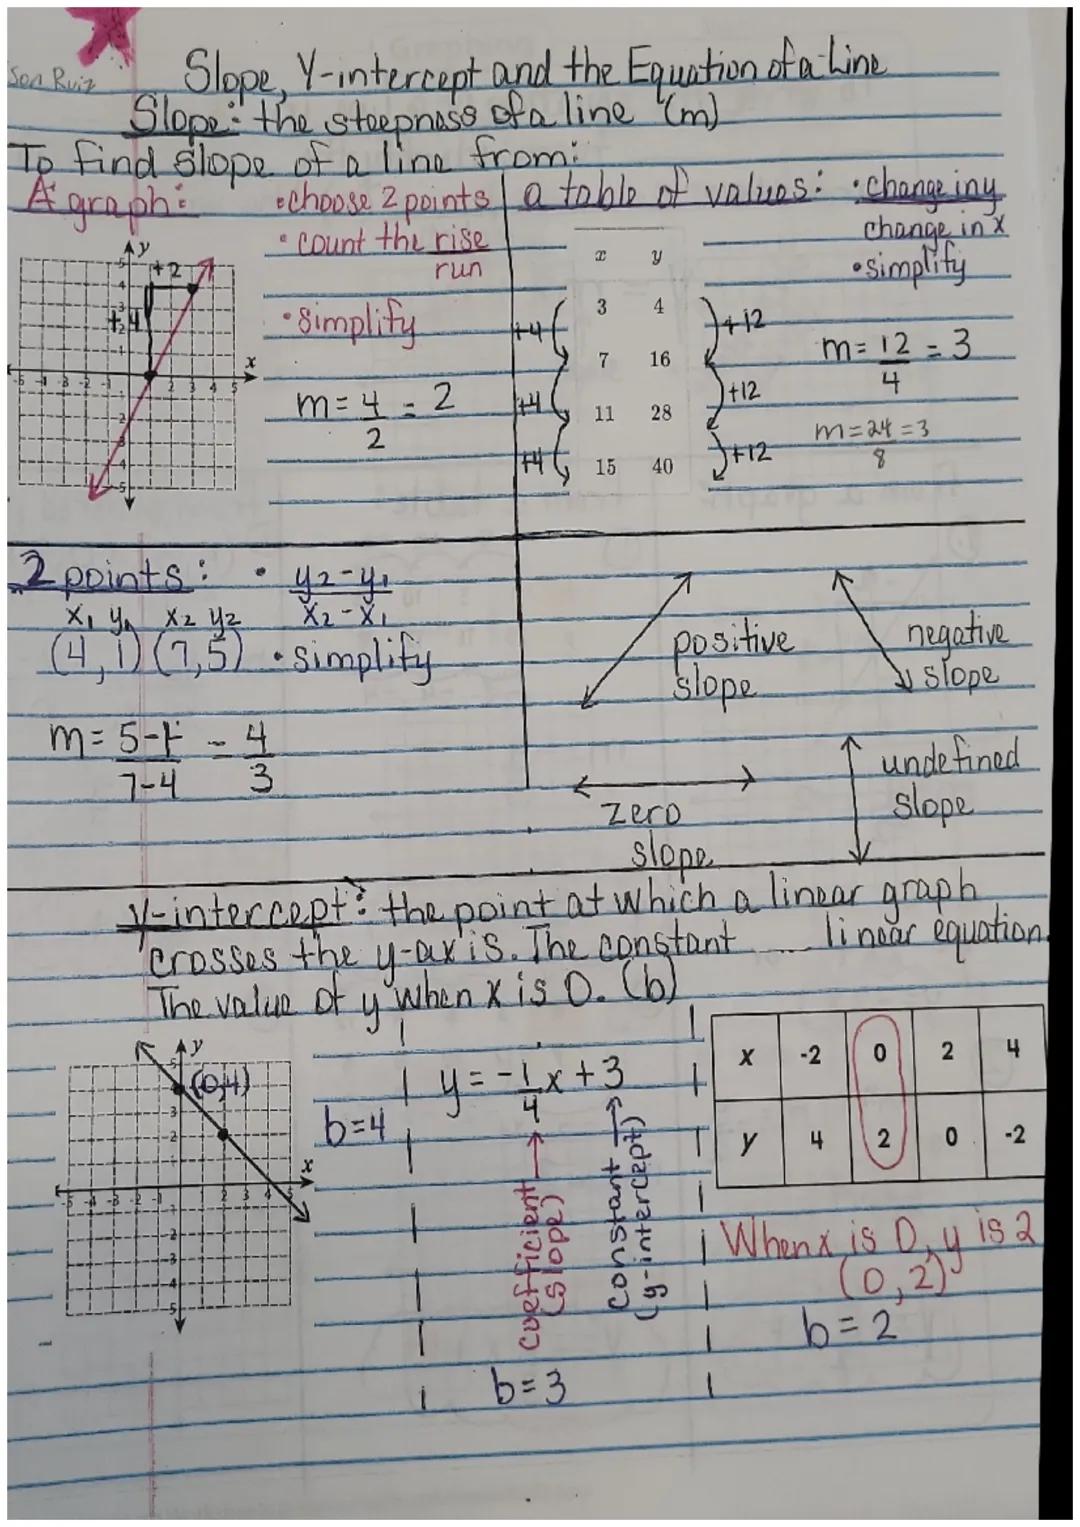 Slope, Y-intercept and the Equation of a Line
Slope: the steepness of a line (m)
To find slope of a line from:
A graph:
• choose 2 points
• count the rise
run
• simplify
m = 4 = 2
2
y
x
+2
+4
a table of values:
• change in y
change in x
• simplify
x y
3 4
7 16
11 28
15 40
+4
+4
+4
+12
+12
+12
m = 12 = 3
4
m = 24 = 3
8
2 points:
• y2 - y1
x2 - x1
x1 y1 x2 y2
(4, 1) (7, 5)
• simplify
m = 5-1 = 4
7-4 3
positive
slope
negative
slope
zero
slope
undefined
slope
y-intercept: the point at which a linear graph
crosses the y-axis. The constant linear equation.
The value of y when x is 0. (b)
y
x
(0,4)
b=4
y = -1 x + 3
4
coefficient
(slope)
constant
(y-intercept)
b=3
x -2 0 2 4
y 4 2 0 -2
When x is 0, y is 2
(0, 2)
b = 2